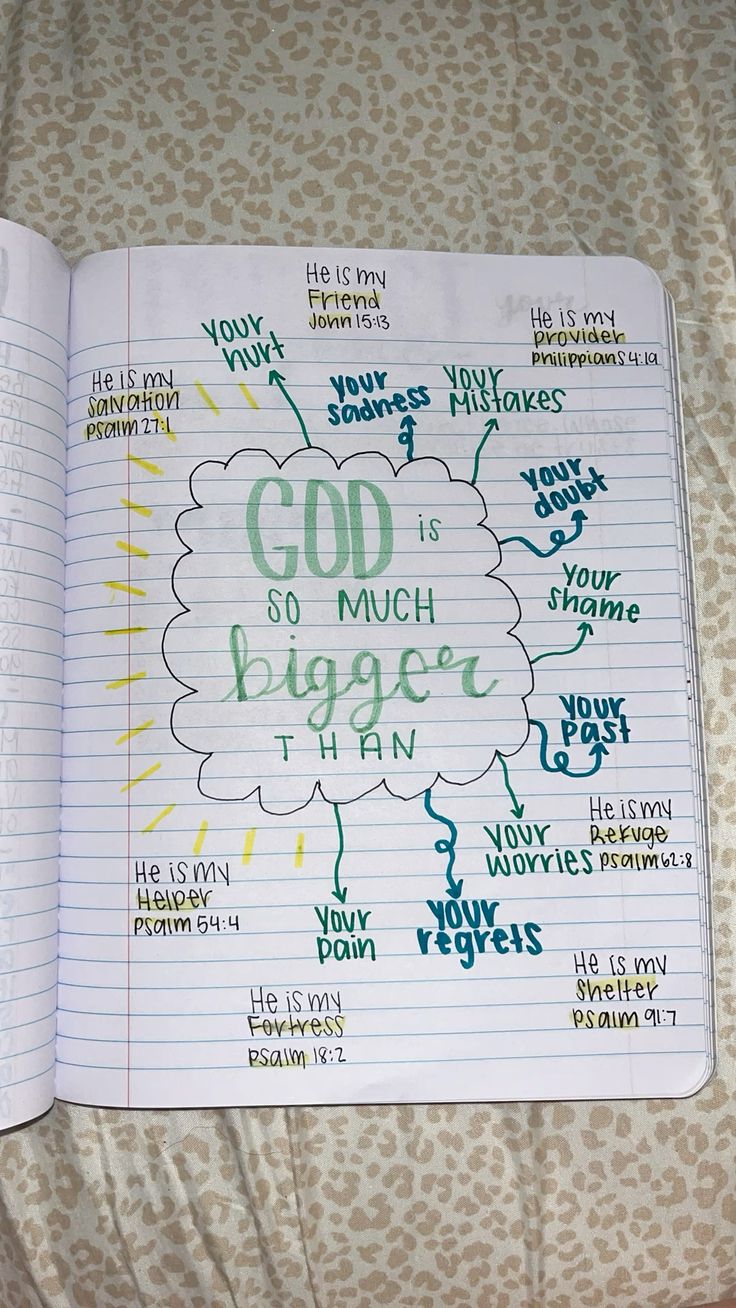 He is my
Friend
John 15:13
He is my
provider
Philippians 4:19
He is my
Salvation
psalm 27:1
your
hurt
your
sadness
your
Mistakes
your
doubt
your
shame
your
past
GOD is
SO MUCH
bigger
THAN
your
worries
He is my
Refuge
psalm 62:8
your
regrets
your
pain
He is my
Helper
psalm 54:4
He is my
Shelter
psalm 91:7
He is my
Fortress
psalm 18:2